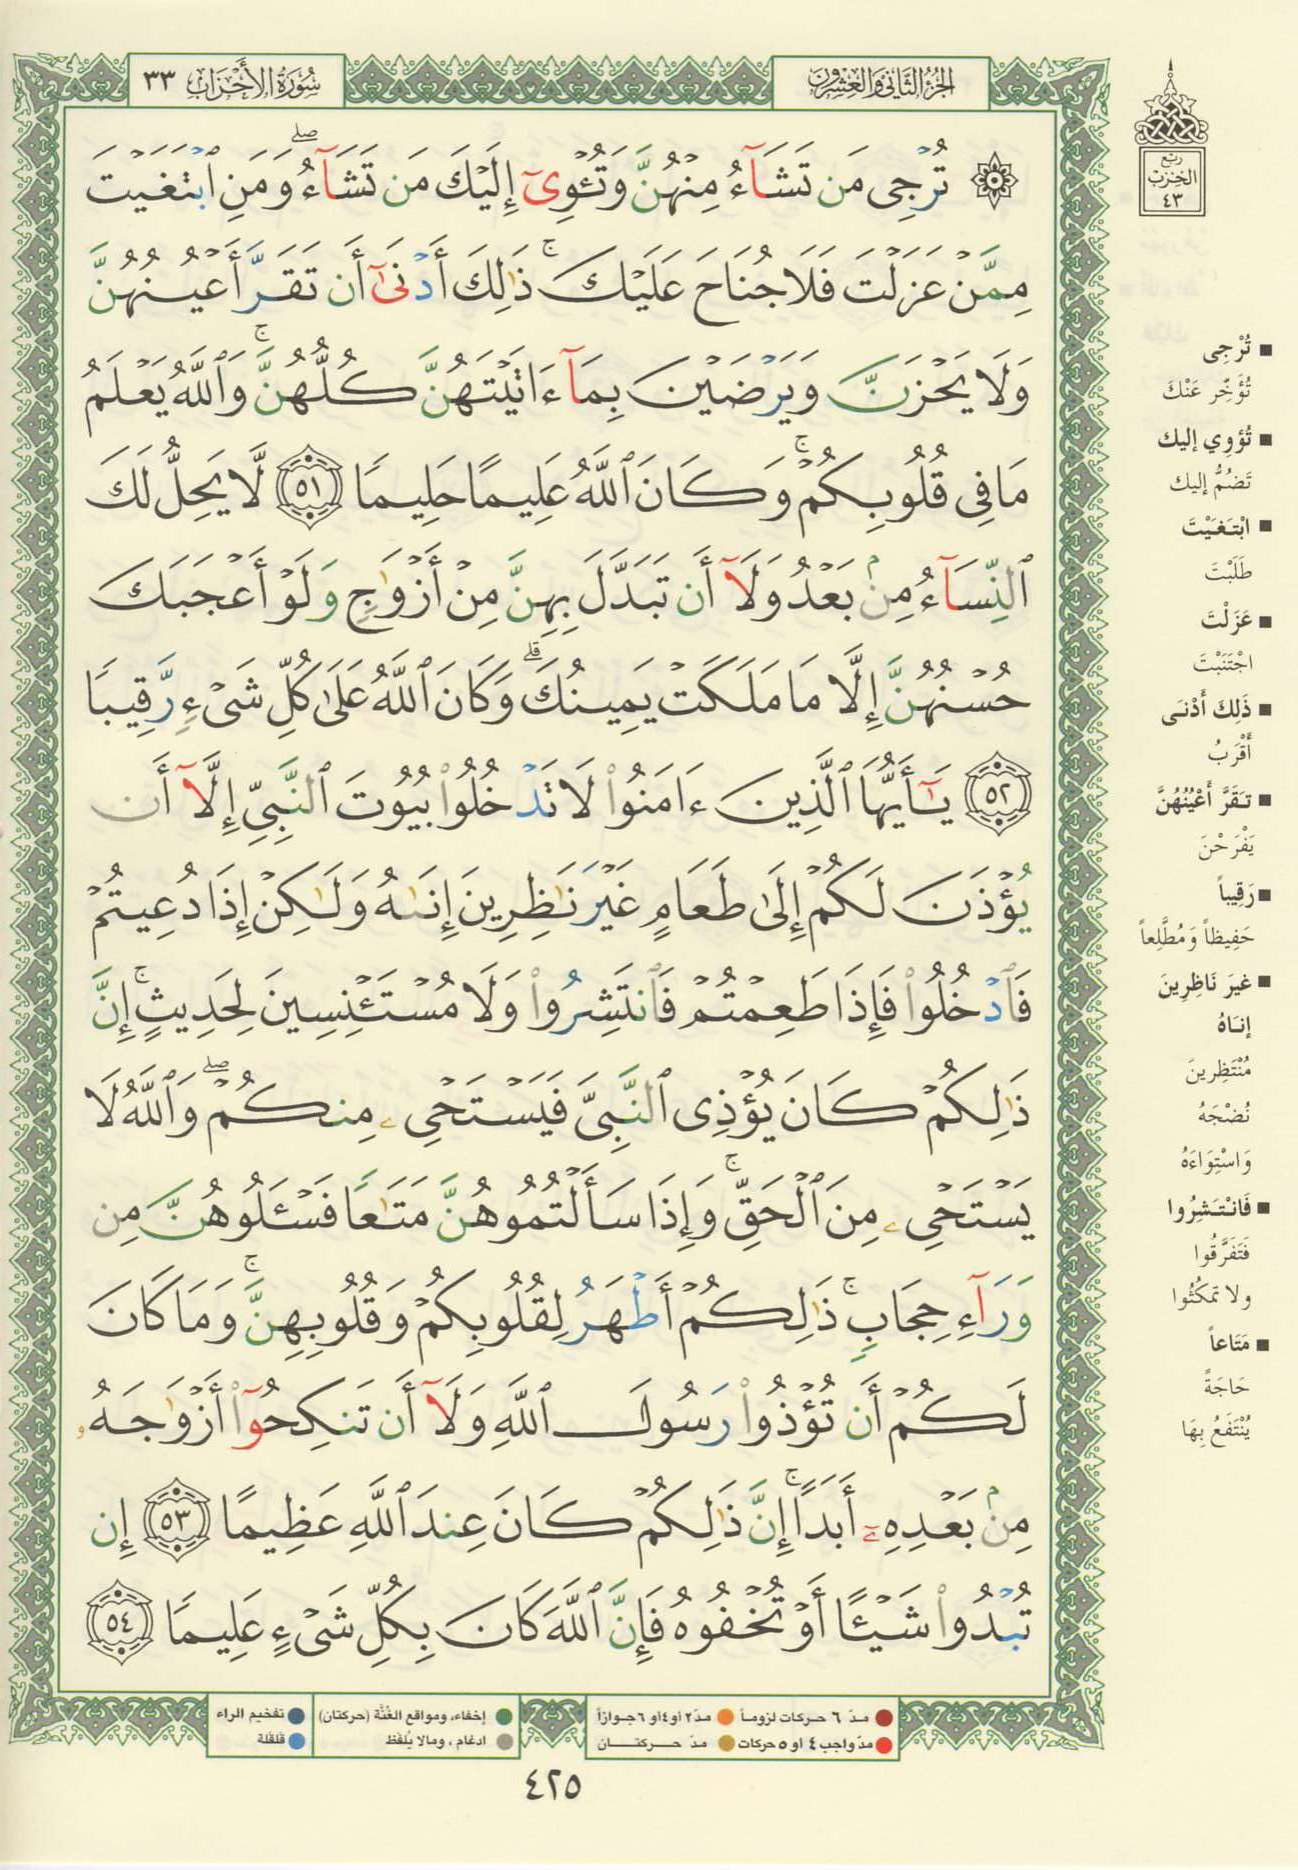 الجزء الثاني والعشرون
سورة الأحزاب ٣٣
ربع
الحزب
٤٣
۞ تُرْجِى مَن تَشَآءُ مِنْهُنَّ وَتُـْٔوِىٓ إِلَيْكَ مَن تَشَآءُ ۖ وَمَنِ ٱبْتَغَيْتَ
مِمَّنْ عَزَلْتَ فَلَا جُنَاحَ عَلَيْكَ ۚ ذَٰلِكَ أَدْنَىٰٓ أَن تَقَرَّ أَعْيُنُهُنَّ
وَلَا يَحْزَنَّ وَيَرْضَيْنَ بِمَآ ءَاتَيْتَهُنَّ كُلُّهُنَّ ۚ وَٱللَّهُ يَعْلَمُ
مَا فِى قُلُوبِكُمْ ۚ وَكَانَ ٱللَّهُ عَلِيمًا حَلِيمًا ﴿٥١﴾ لَّا يَحِلُّ لَكَ
ٱلنِّسَآءُ مِنۢ بَعْدُ وَلَآ أَن تَبَدَّلَ بِهِنَّ مِنْ أَزْوَٰجٍ وَلَوْ أَعْجَبَكَ
حُسْنُهُنَّ إِلَّا مَا مَلَكَتْ يَمِينُكَ ۗ وَكَانَ ٱللَّهُ عَلَىٰ كُلِّ شَىْءٍ رَّقِيبًا
﴿٥٢﴾ يَـٰٓأَيُّهَا ٱلَّذِينَ ءَامَنُوا۟ لَا تَدْخُلُوا۟ بُيُوتَ ٱلنَّبِىِّ إِلَّآ أَن
يُؤْذَنَ لَكُمْ إِلَىٰ طَعَامٍ غَيْرَ نَـٰظِرِينَ إِنَىٰهُ وَلَـٰكِنْ إِذَا دُعِيتُمْ
فَٱدْخُلُوا۟ فَإِذَا طَعِمْتُمْ فَٱنتَشِرُوا۟ وَلَا مُسْتَـْٔنِسِينَ لِحَدِيثٍ ۚ إِنَّ
ذَٰلِكُمْ كَانَ يُؤْذِى ٱلنَّبِىَّ فَيَسْتَحْىِۦ مِنكُمْ ۖ وَٱللَّهُ لَا
يَسْتَحْىِۦ مِنَ ٱلْحَقِّ ۚ وَإِذَا سَأَلْتُمُوهُنَّ مَتَـٰعًا فَسْـَٔلُوهُنَّ مِن
وَرَآءِ حِجَابٍ ۚ ذَٰلِكُمْ أَطْهَرُ لِقُلُوبِكُمْ وَقُلُوبِهِنَّ ۚ وَمَا كَانَ
لَكُمْ أَن تُؤْذُوا۟ رَسُولَ ٱللَّهِ وَلَآ أَن تَنكِحُوٓا۟ أَزْوَٰجَهُۥ
مِنۢ بَعْدِهِۦٓ أَبَدًا ۚ إِنَّ ذَٰلِكُمْ كَانَ عِندَ ٱللَّهِ عَظِيمًا ﴿٥٣﴾ إِن
تُبْدُوا۟ شَيْـًٔا أَوْ تُخْفُوهُ فَإِنَّ ٱللَّهَ كَانَ بِكُلِّ شَىْءٍ عَلِيمًا ﴿٥٤﴾
■ تُرْجِي
تُؤَخِّر عَنْكَ
■ تُؤوِي إليك
تَضُمُّ إليك
■ ابْتَغَيْتَ
طَلَبْتَ
■ عَزَلْتَ
اجْتَنَبْتَ
■ ذَلِكَ أَدْنَى
أَقْرَبُ
■ تَقَرَّ أَعْيُنُهُنَّ
يَفْرَحْنَ
■ رَقِيباً
حَفِيظاً وَمُطَّلِعاً
■ غيرَ نَاظِرِينَ
إنَاهُ
مُنْتَظِرينَ
نُضْجَهُ
وَاسْتِوَاءَهُ
■ فَانْتَشِرُوا
فَتَفَرَّقُوا
ولا تمكُثُوا
■ مَتَاعاً
حَاجَةً
يُنْتَفَعُ بِهَا
مدّ ٦ حركات لزوماً
مدّ ٢ أو ٤ أو ٦ جوازاً
مدّ واجب ٤ او ٥ حركات
مدّ حركتان
إخفاء، ومواقع الغُنَّة (حركتان)
ادغام، ومالا يُلفَظ
تفخيم الراء
قلقلة
٤٢٥